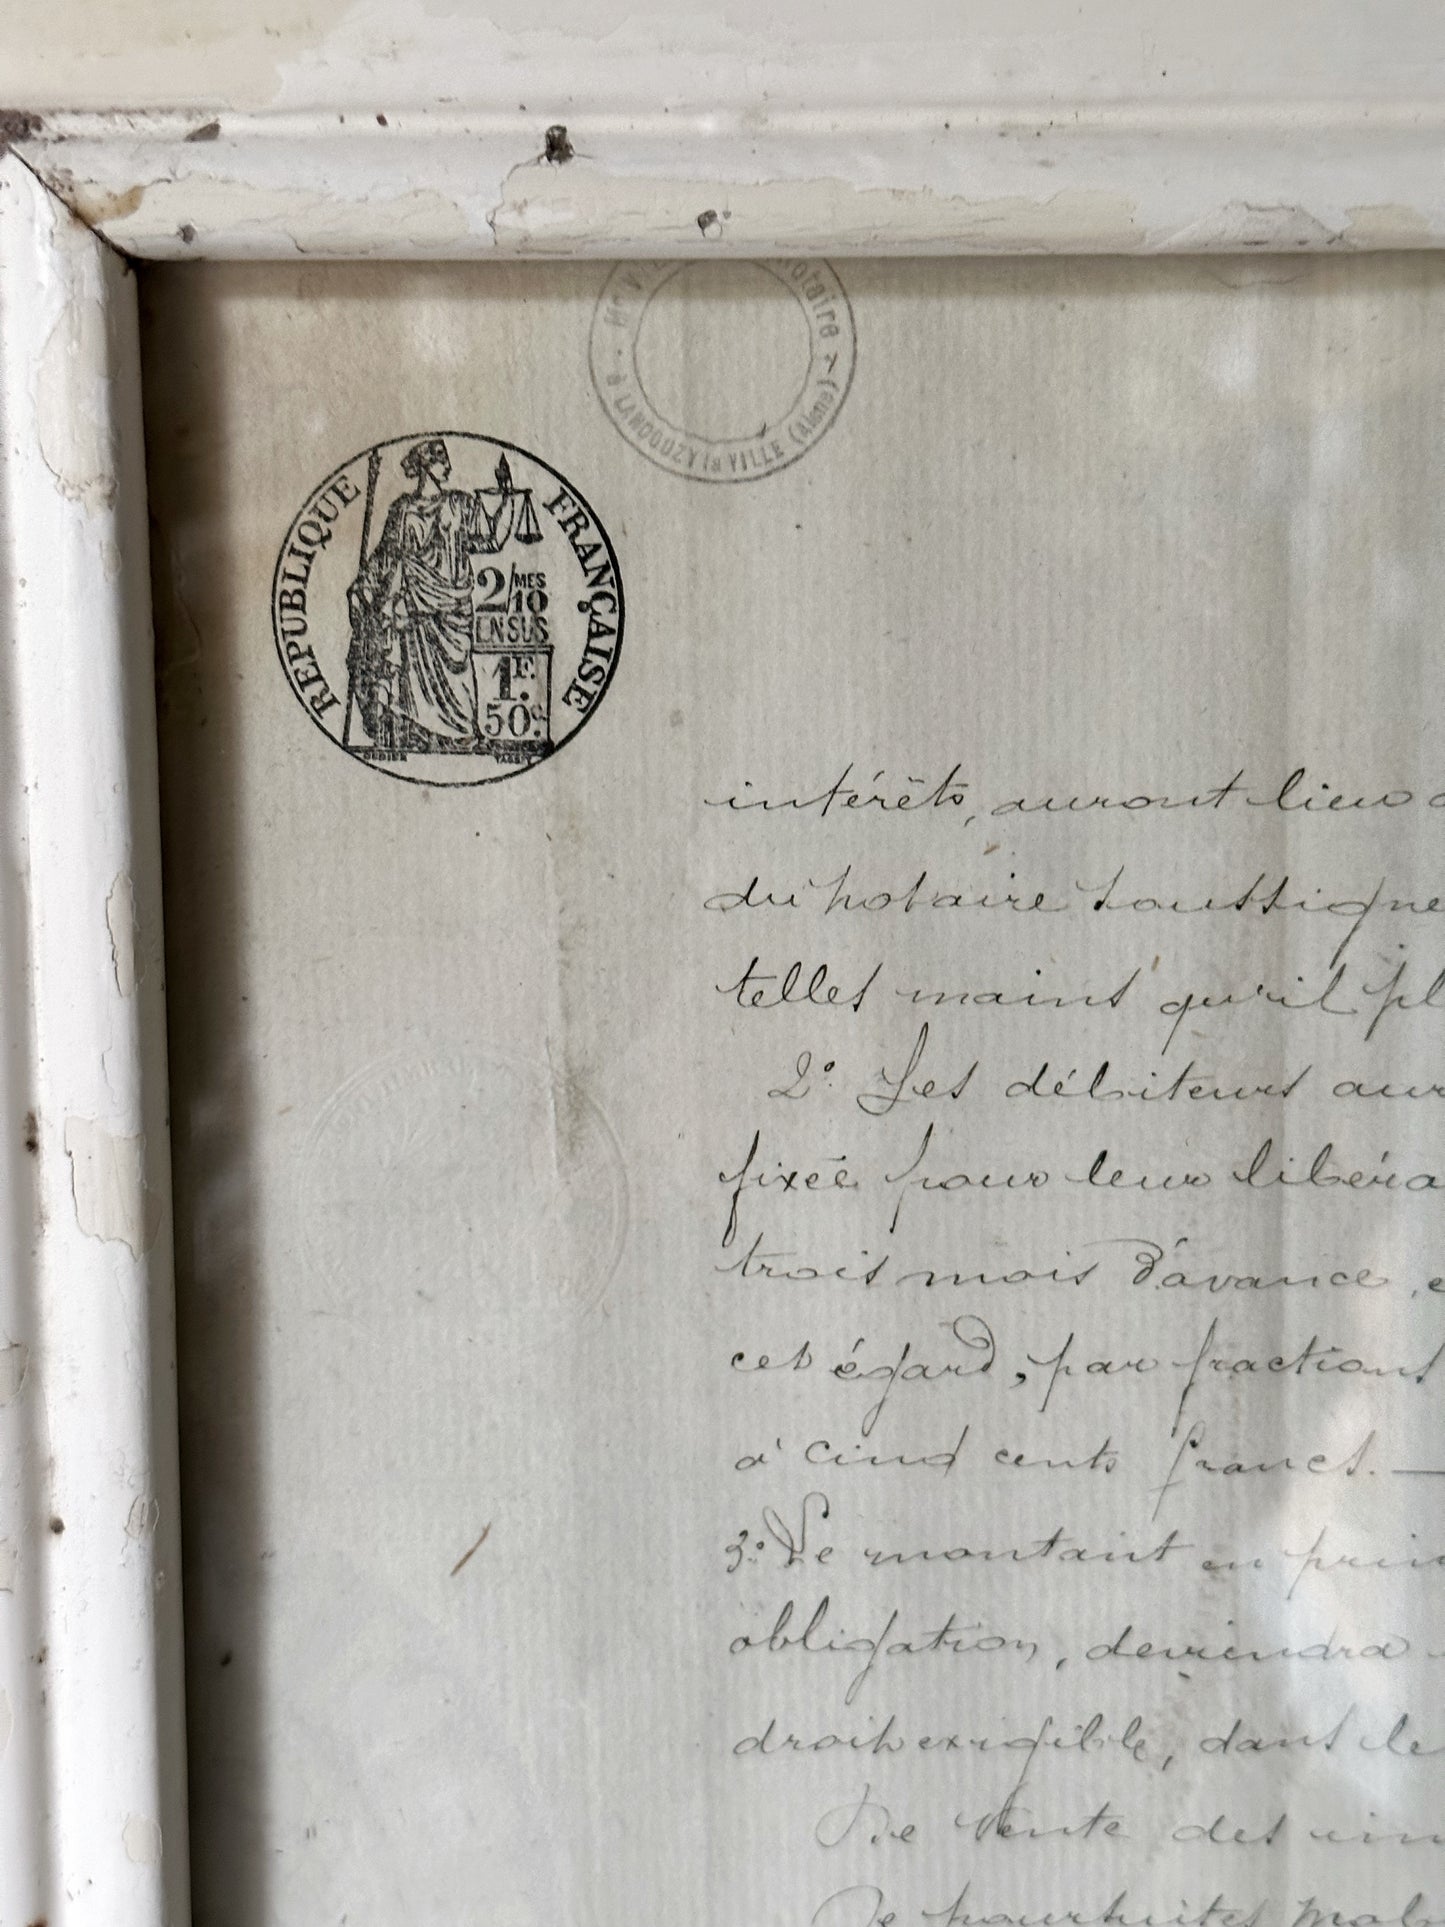 Notaire
à LANDOUZY la VILLE (Aisne)
RÉPUBLIQUE FRANÇAISE
2/10 MES
EN SUS
1F.
50c.
intérêts, auront lieu
du notaire soussigné
telles mains qu'il pl
2º. Les débiteurs aur
fixée pour leur libéra
trois mois d'avance, e
cet égard, par fractions
à cinq cents francs. —
3º. Le montant en prin
obligation, deviendra
droit exigible, dans le
De vente des im
De poursuites